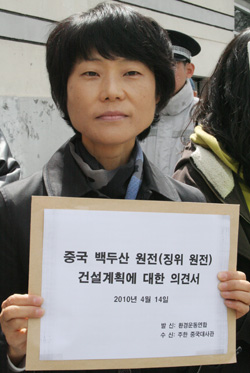 중국 백두산 원전(징위 원전)
건설계획에 대한 의견서
2010년 4월 14일
발 신: 환경운동연합
수 신: 주한 중국대사관